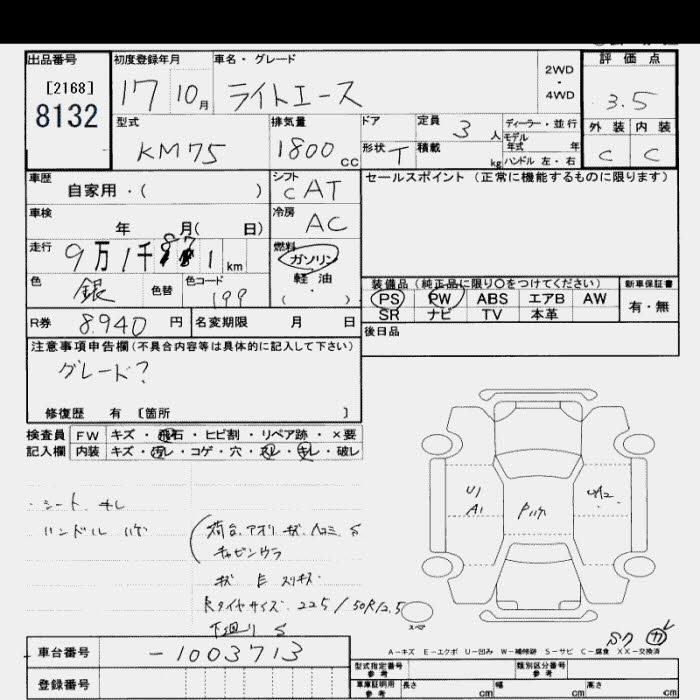 出品番号
[2168]
8132
初度登録年月
17 10月
車名・グレード
ライトエース
2WD
・
4WD
評価点
3.5
外装 内装
C C
型式
KM75
排気量
1800 cc
ドア
形状 T
定員 3 人
積載 kg
ディーラー・並行
モデル
年式 年
ハンドル 左・右
車歴
自家用・( )
シフト
CAT
車検
年 月( 日)
冷房
AC
走行
9万1千 1 km
燃料
ガソリン
軽油
( ・ )
色
銀
色替
色コード
199
セールスポイント (正常に機能するものに限ります)
装備品 (純正品に限り○をつけてください)
PS PW ABS エアB AW
SR ナビ TV 本革
新車保証書
有・無
後日品
R券
8.940 円
名変期限 月 日
注意事項申告欄(不具合内容等は具体的に記入して下さい)
グレード?
修復歴 有 〔箇所 〕
検査員 FW キズ・飛石・ヒビ割・リペア跡・×要
記入欄 内装 キズ・汚レ・コゲ・穴・スレ・キレ・破レ
・シート キレ
ハンドル ハゲ
荷台、アオリ キズ、ヘコミ、S
キャビンウラ
Rタイヤサイズ、225/50R12.5
下廻り S
U1
A1
スペア
A-キズ E-エクボ U-凹み W-補修跡 S-サビ C-腐食 XX-交換済
車台番号
-1003713
登録番号
型式指定番号
参考
類別区分番号
参考
車庫証明用
参考
長さ cm
幅 cm
高さ cm